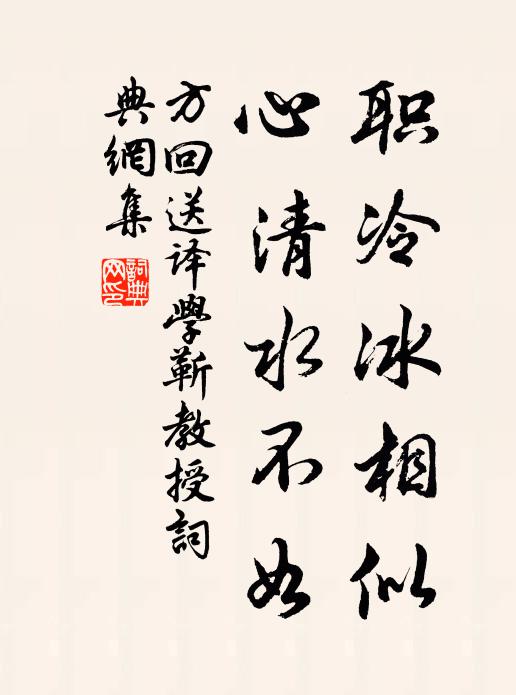 职冷冰相似
心清水不如
方回送译學靳教授詞
典網集
詞典
网印